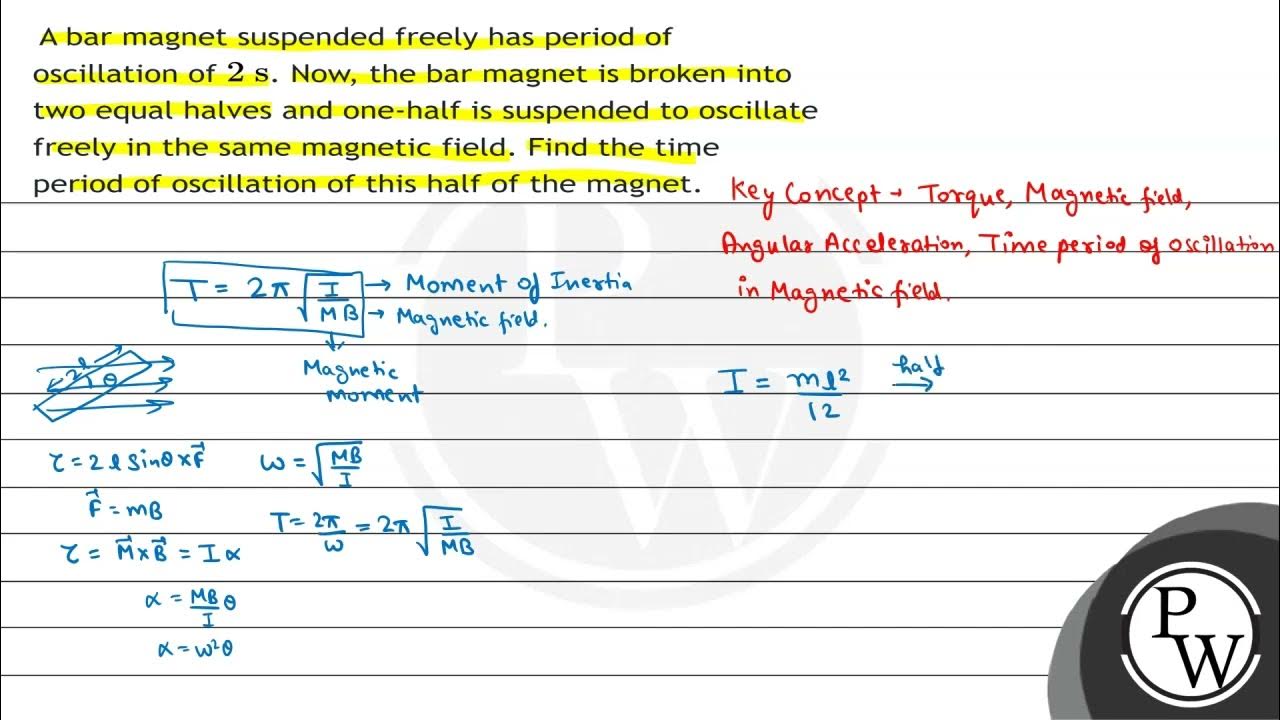 A bar magnet suspended freely has period of
oscillation of 2 s. Now, the bar magnet is broken into
two equal halves and one-half is suspended to oscillate
freely in the same magnetic field. Find the time
period of oscillation of this half of the magnet.
Key Concept → Torque, Magnetic field,
Angular Acceleration, Time period of oscillation
in Magnetic field.
T = 2π √(I/MB) → Moment of Inertia
→ Magnetic field.
Magnetic
moment
2l θ
I = ml²/12 half →
τ = 2l sinθ × F⃗
ω = √(MB/I)
F⃗ = mB
T = 2π/ω = 2π √(I/MB)
τ = M⃗ × B⃗ = Iα
α = MB/I θ
α = ω²θ
P
W
PW